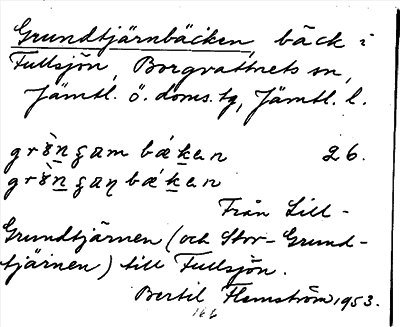 Grundtjärnbäcken, bäck i
Fullsjön, Borgvattnets sn,
Jämtl. ö. doms. tg, Jämtl. l.
26.
Från Lill-
Grundtjärnen (och Stor-Grund-
tjärnen) till Fullsjön.
Bertil Flemström 1953.
166